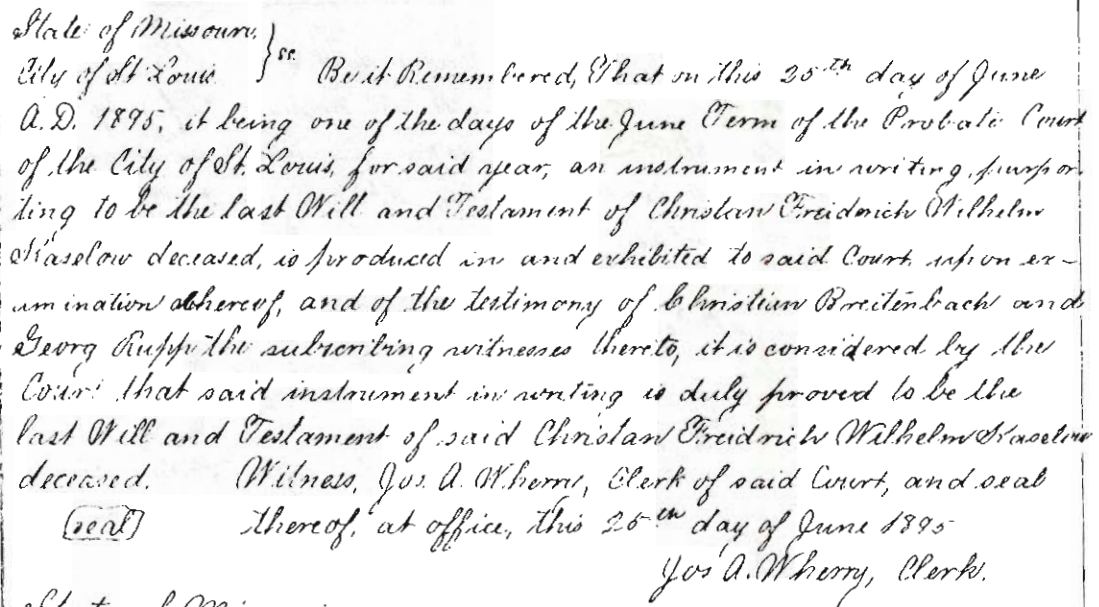 State of Missouri
City of St Louis } ss. Be it Remembered, That on this 25th day of June
A.D. 1895, it being one of the days of the June Term of the Probate Court
of the City of St. Louis, for said year, an instrument in writing, purpor-
ting to be the last Will and Testament of Christan Freiderich Wilhelm
Kaselow deceased, is produced in and exhibited to said Court upon ex-
amination thereof, and of the testimony of Christian Breitenbach and
Georg Rupp the subscribing witnesses thereto, it is considered by the
Court that said instrument in writing is duly proved to be the
last Will and Testament of said Christan Freidrich Wilhelm Kaselow
deceased. Witness, Jos. A. Wherry, Clerk of said Court, and seal
(seal) thereof, at office, this 25th day of June 1895
Jos A. Wherry, Clerk.
State of Missouri